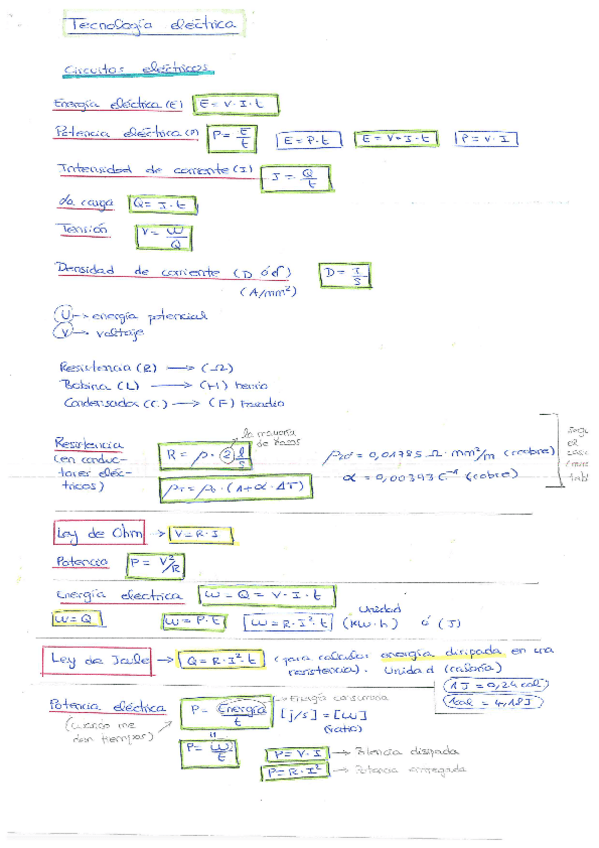 Tecnología eléctrica
Circuitos eléctricos
Energía eléctrica (E) E = V · I · t
Potencia eléctrica (P) P = E/t E = P · t E = V · I · t P = V · I
Intensidad de corriente (I) I = Q/t
la carga Q = I · t
Tensión V = W/Q
Densidad de corriente (D ó d) D = I/S
(A/mm²)
U → energía potencial
V → voltaje
Resistencia (R) → (Ω)
Bobina (L) → (H) henrio
Condensador (C) → (F) Faradio
la mayoría
de casos
Resistencia
(en conduc-
tores eléc-
tricos)
R = ρ · 2 l/S
ρ20 = 0,01785 Ω · mm²/m (cobre)
ρT = ρ0 · (1 + α · ΔT)
α = 0,00393 C⁻¹ (cobre)
el
Ley de Ohm → V = R · I
Potencia P = V²/R
Energía eléctrica W = Q = V · I · t
Unidad
W = Q W = P · t W = R · I² · t (KW · h) ó (J)
Ley de Joule → Q = R · I² · t (para calcular energía disipada en una
resistencia). Unidad (caloría)
1J = 0,24 cal
1cal = 4,18J
Potencia eléctrica
(cuando me
dan tiempos)
P = Energía/t → Energía consumida
[J/s] = [W]
(vatio)
P = W/t
P = V · I → Potencia disipada
P = R · I² → Potencia entregada